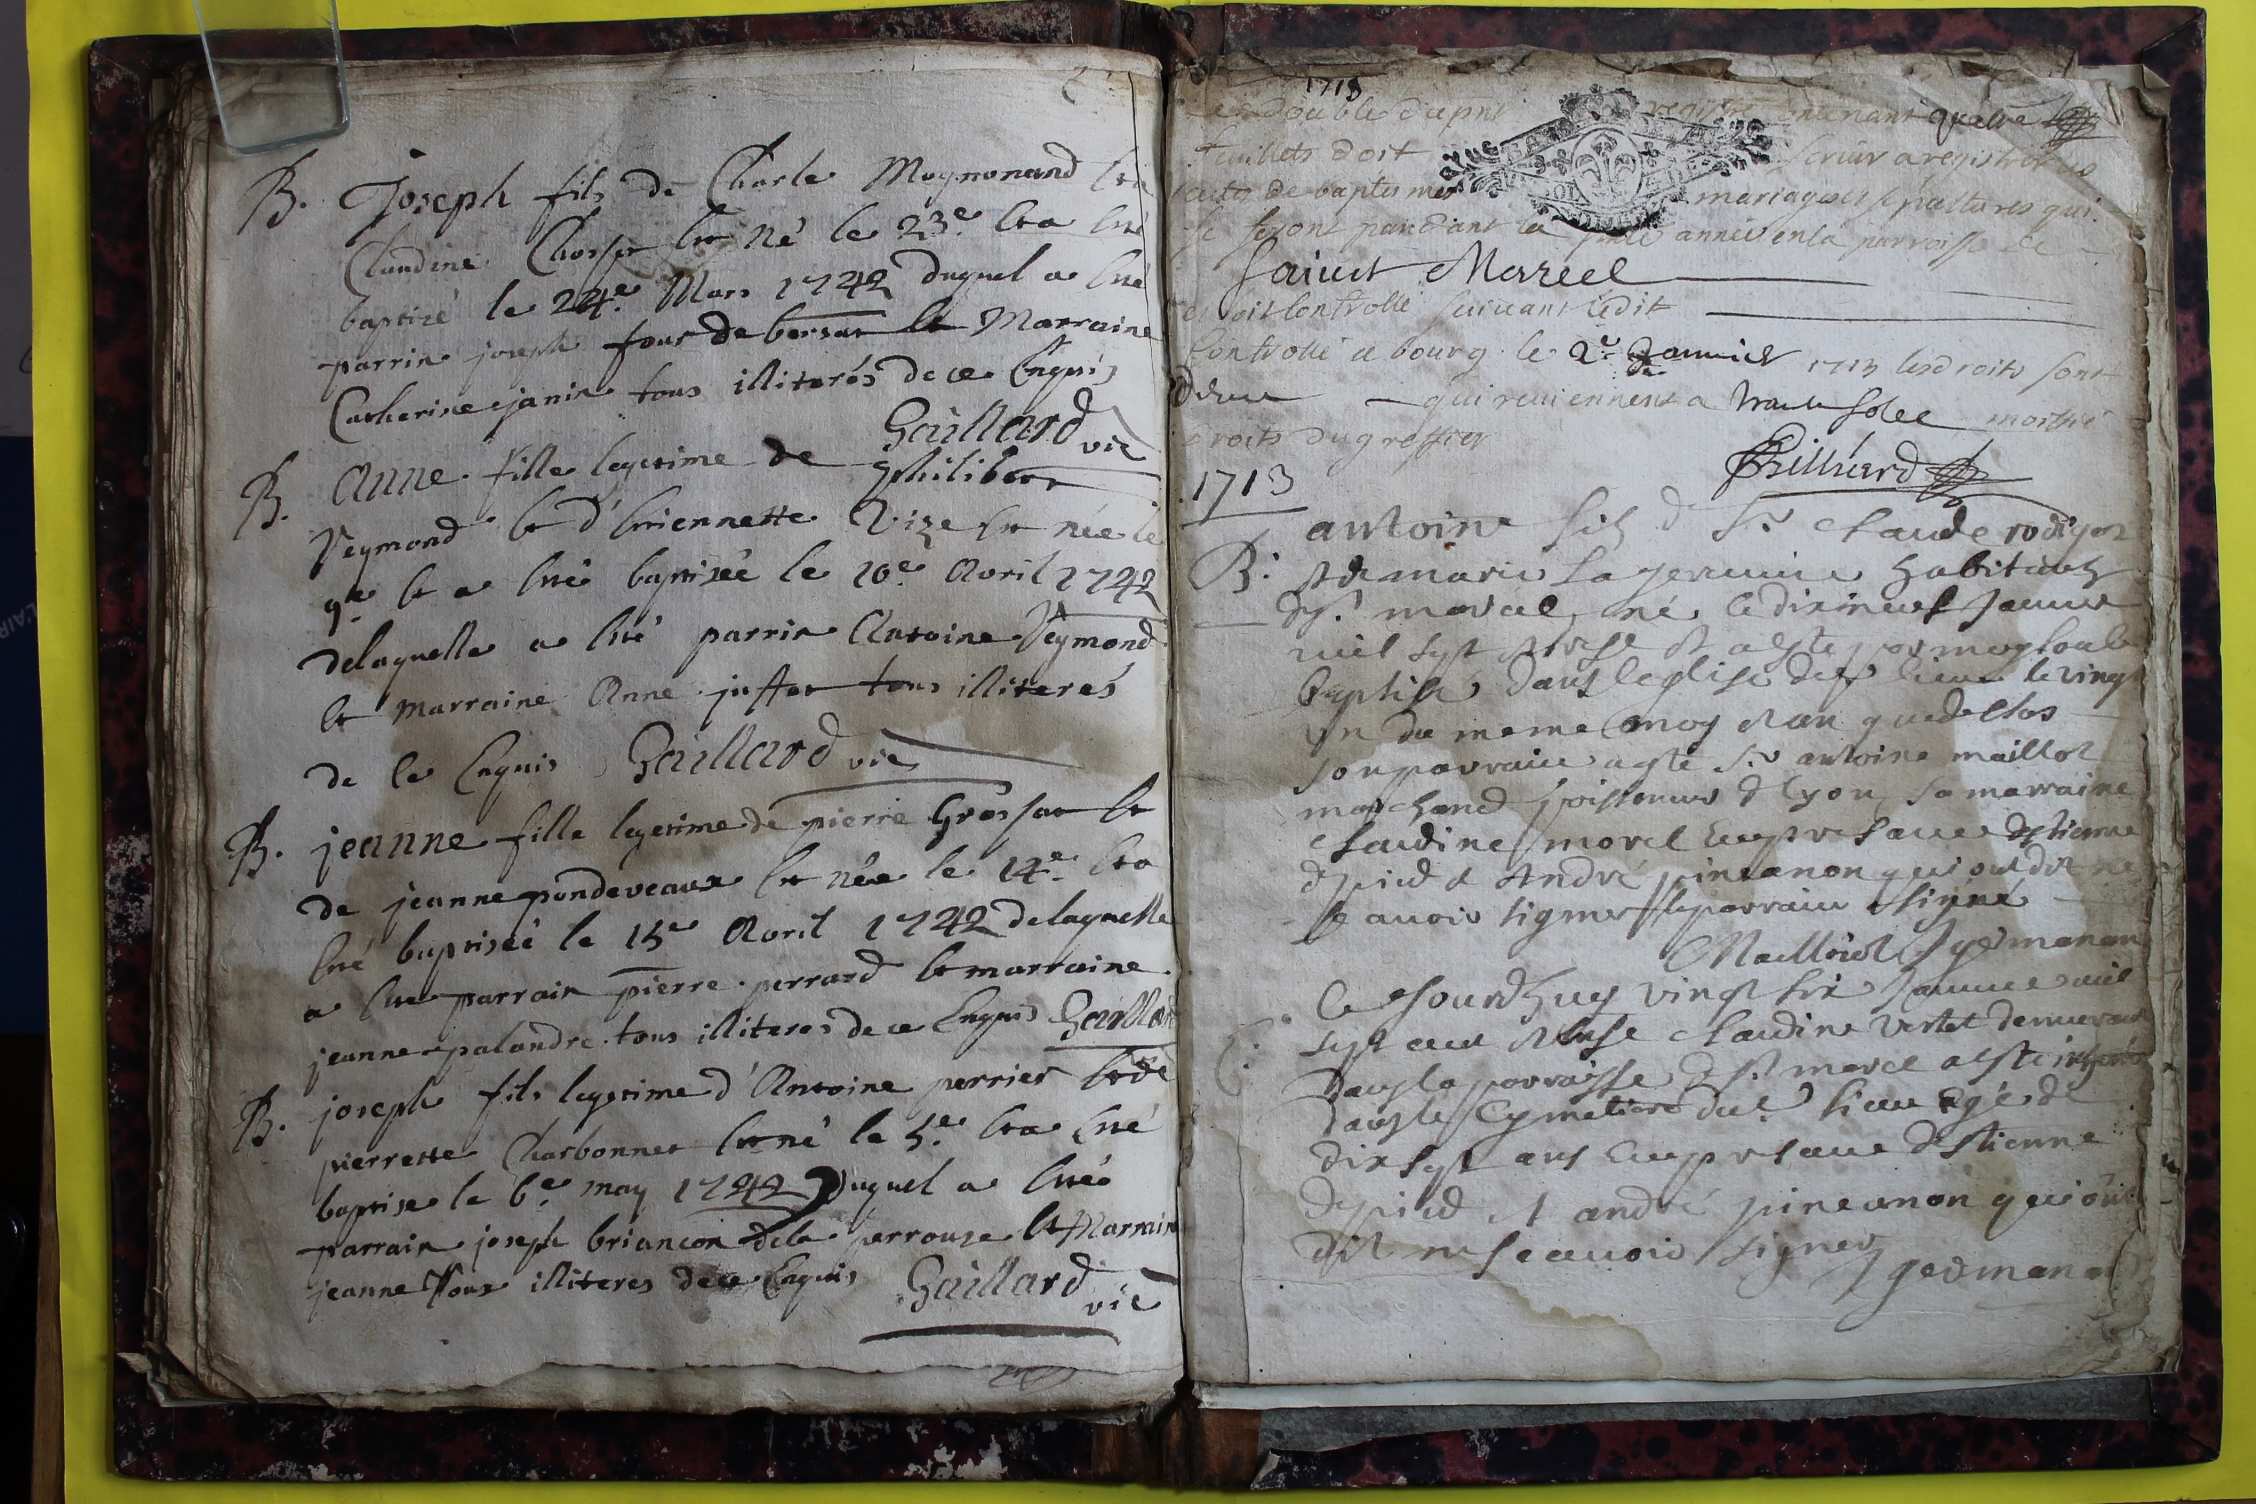 B. Joseph fils de Charle Moynonand et a
Claudine Chosset est né le 23e et a été
baptizé le 24e Mars 1742 duquel a été
parrin joseph four de bersat et Marraine
Catherine janin tous illiterés de ce Enquis
Gaillard vic
B. Anne fille legetime de philibert
Veymond et d'Etiennette Vize est née le
9e et a été baptizée le 10e Avril 1742
delaquelle a été parrin Antoine Veymond
et marraine Anne juffet tous illiterés
de ce Enquis Gaillard vic
B. jeanne fille legetime de pierre Grossat et
de jeanne pondeveaux est née le 14e et a
été baptizée le 15e Avril 1742 delaquelle
a été parrain pierre perrard et marraine
jeanne palandre tous illiteres de ce Enquis Gaillard
B. joseph fils legetime d'Antoine perrier et de
pierrette Charbonnet est né le 5e et a été
baptise le 6e may 1742 Duquel a été
parrain joseph briancon dela perrouze et Marraine
jeanne four illiteres de ce Enquis Gaillard vic
1713
Le double du pnt registre contenant quatre
feuillets doit servir a registrer les
actes de baptesmes mariages et sepultures qui
se feront pandant la pnte année en la parroisse de
Sainct Marcel
et soit controllé suivant l'édit
Controllé a bourg le 2e Janvier 1713 les droits sont
qui reviennent a trante solz moitié
droits du greffier
1713
B. antoine filz d Sr Claude rodiyet
et de marie la germine habitantz
de St marcel né le dixineuf Janvier
mil sept et treise et a esté par moy soubz
baptisé dans leglise de lieu le vingt
un du meme moy et an que dessus
son parrain a esté Sr antoine maillot
marchand poissonnier d Lyon sa marraine
claudine morel En presance destienne
depied et André pineanon qui ont dit ne
scavoir signer le parrain a signé
Maillot germanan
Ce Jourdhuy vingt six Janvier mil
sept cent et treise claudine vertet
dans la parroisse d St marcel a esté inhumée
dans le Cymetiere dud lieu agée de
dix sept ans En presance d'Estienne
depied et andré pineanon qui ont
dit ne scavoir signer
germanan